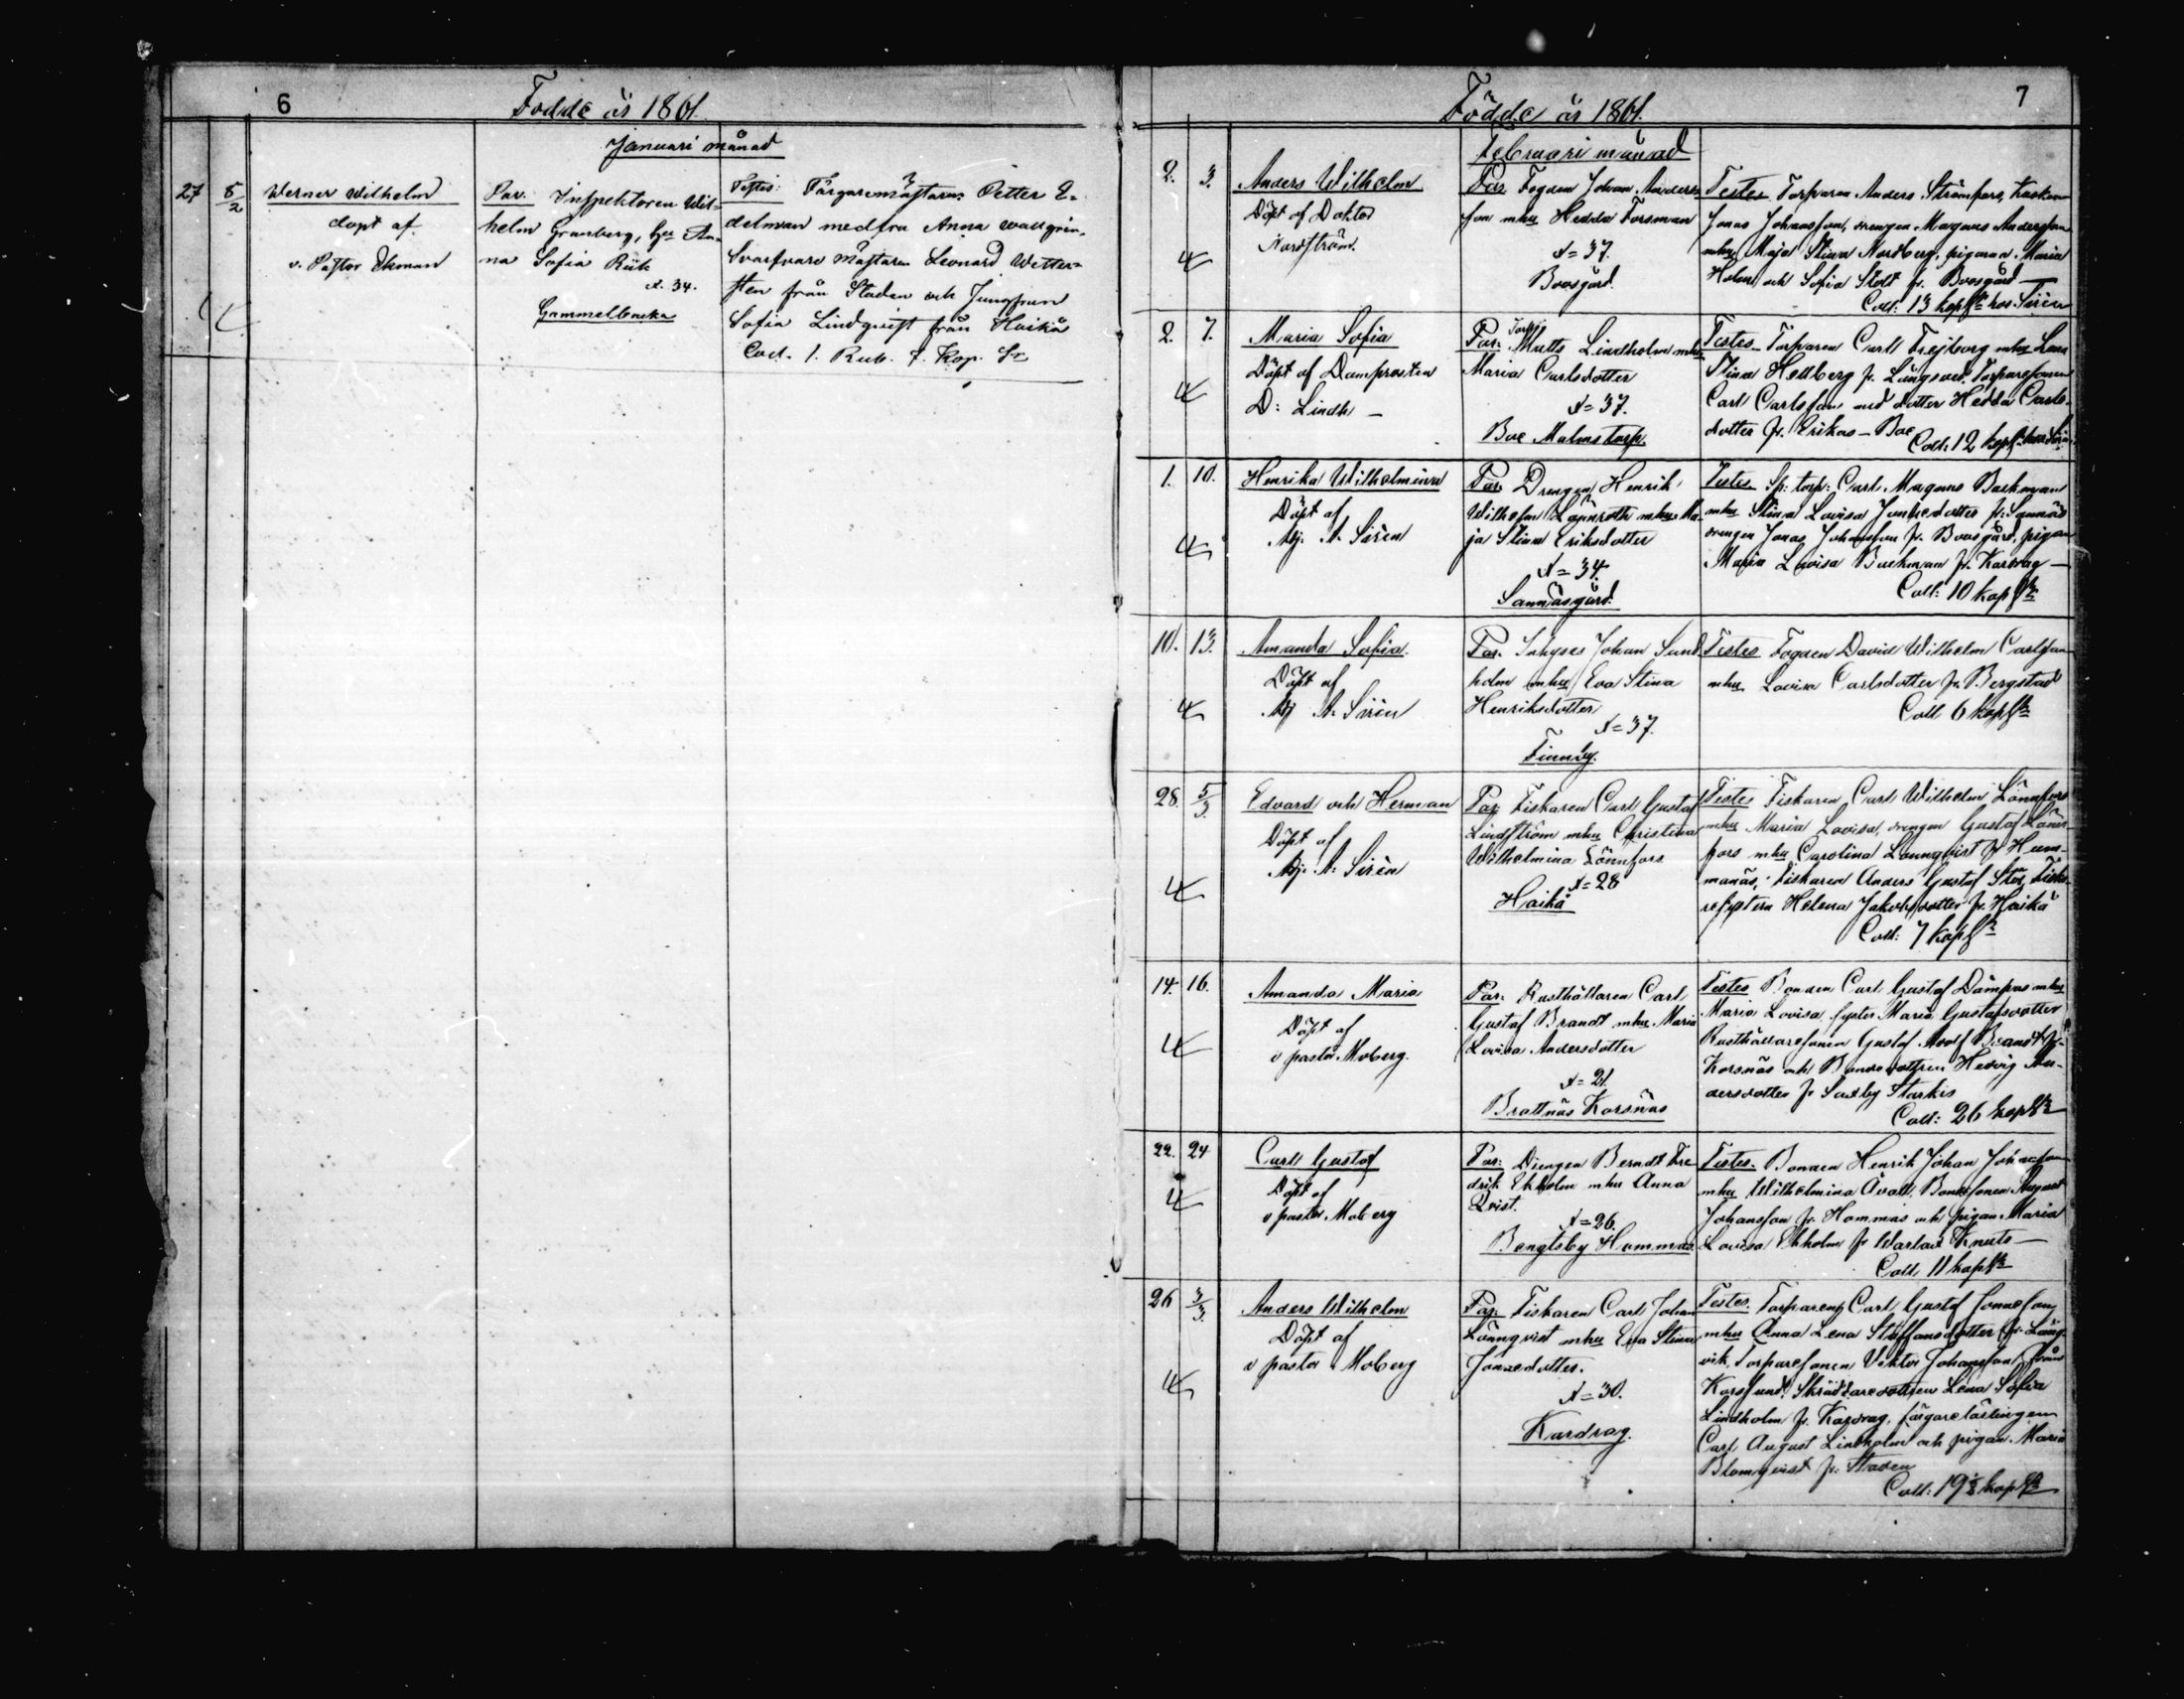 6
Födde år 1861.
Januari månad
27 5/2
Werner Wilhelm
döpt af
v. Pastor Ekman
Par. Inspektoren Wil-
helm Granberg, hu An-
na Sofia Rück
æ. 34.
Gammelbacka
Testes: Färgaremästaren Petter E-
delman med fru Anna Wallgrén,
Svarfvare Mästaren Leonard Wetter-
sten från Staden och Jungfrun
Sofia Lindqvist från Haikå
Coll. 1. Rub. 7. Kop. Sr
7
Födde år 1861.
Februari månad
2. 3.
Anders Wilhelm
Döpt af Doktor
Nordström.
Par Fogden Johan Anders-
son mhu Hedda Forsman
Æ=37.
Boesgård.
Testes Torparen Anders Strömfors,
Jonas Johansson, drengen Magnus Andersson
mhu Maja Stina Nordberg, pigorna Maria
Holm och Sofia Stolt fr. Boesgård —
Coll: 13 kop Sr hos Sirén
2. 7.
Maria Sofia
Döpt af Domprosten
D: Lindh —
Par. Torp: Matts Lindholm mhu
Maria Carlsdotter
Æ=37.
Boe Malms torp.
Testes Torparen Carl Frejborg mhu Lena
Stina Hellberg fr. Långvad, Torparesonen
Carl Carlsson med dotter Hedda Carls-
dotter fr. Erikas — Boe
Coll: 12 kop Sr hos Sirén
1. 10.
Henrika Wilhelmina
Döpt af
Adj. A. Sirén
Par Drengen Henrik
Wilhelm Lönnroth mhu Ma-
ja Stina Eriksdotter
Æ=34.
Sannäsgård.
Testes Sp: torp: Carl Magnus Backman
mhu Stina Lovisa Jonaedotter fr. Sannäs
drengen Jonas Johansson fr. Boesgård, pigan
Maria Lovisa Backman fr. Kardrag —
Coll: 10 kop Sr
10. 13.
Amanda Sofia
Döpt af
Adj A. Sirén
Par. Inhyses Johan Sund-
holm mhu Eva Stina
Henriksdotter
Æ=37.
Finnby.
Testes Fogden David Wilhelm Carlsson
mhu Lovisa Carlsdotter fr. Bergstad
Coll 6 kop Sr
28. 5/3.
Edvard och Herman
Döpt af
Adj. A. Sirén
Par Fiskaren Carl Gustaf
Lindström mhu Christina
Wilhelmina Lönnfors
Æ=28
Haikå
Testes Fiskaren Carl Wilhelm Lönnfors
mhu Maria Lovisa, drengen Gustaf Lönn-
fors mhu Carolina Lönnqvist fr Hum-
manäs, fiskaren Anders Gustaf Stör,
Helena Jakobsdotter fr. Haikå
Coll: 7 kop Sr
14. 16.
Amanda Maria
Döpt af
v pastor Moberg.
Par: Rusthållaren Carl
Gustaf Brandt mhu Maria
Lovisa Andersdotter
Æ=21.
Brattnäs Korsnäs
Testes Bonden Carl Gustaf Dämpars mhu
Maria Lovisa, syster Maria Gustafsdotter
Rusthållaresonen Gustaf Adolf Brandt fr.
Korsnäs och Bondedottren Hedvig An-
dersdotter fr Saxby Starkis
Coll: 26 kop Sr
22. 24
Carl Gustaf
Döpt af
v pastor Moberg
Par: Drengen Berndt Fre
drik Ekholm mhu Anna
Qvist.
Æ=26.
Bengtsby Hommas
Testes. Bonden Henrik Johan Johansson
mhu Wilhelmina Åvall, Bondesonen August
Johansson fr. Hommas och pigan Maria
Lovisa Ekholm fr Warlax Knuts —
Coll 11 kop Sr
26 3/3.
Anders Wilhelm
Döpt af
v pastor Moberg
Par: Fiskaren Carl Johan
Lönnqvist mhu Eva Stina
Jonaedotter.
Æ=30.
Kardrag.
Testes. Torparen Carl Gustaf Jonaeson
mhu Anna Lena Staffansdotter fr. Lång-
vik, Torparesonen Viktor Johansson från
Karsund, Skräddaredottren Lena Sofia
Lindholm fr. Kardrag, färgarelärlingen
Carl August Lindholm och pigan Maria
Blomqvist fr. Staden
Coll: 19½ kop Sr